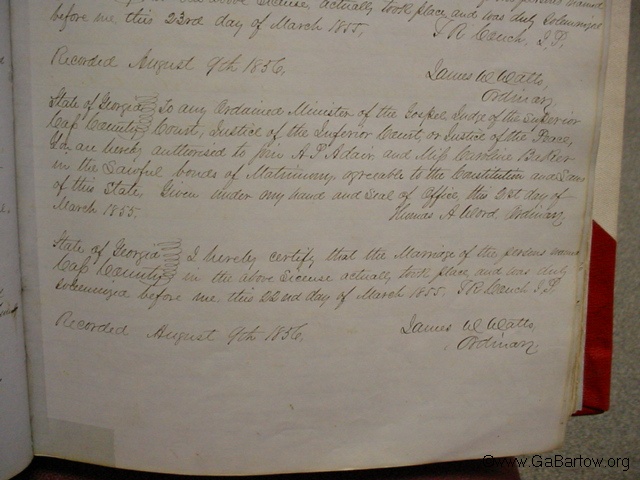 the above License, actually took place and was duly solemnized
before me this 23rd day of March 1855, J R Couch, J.P.
Recorded August 9th 1856,
James W Watts,
Ordinary.
State of Georgia To any Ordained Minister of the Gospel, Judge of the Superior
Cass County Court, Justice of the Inferior Court, or Justice of the Peace,
You are hereby authorised to join A P Adair and Miss Caroline Barker
in the Lawful bonds of Matrimony agreeable to the Constitution and Laws
of this State, Given under my hand and Seal of Office, this 21st day of
March 1855. Thomas A Word Ordinary.
State of Georgia I hereby certify that the Marriage of the persons named
Cass County in the above License actually took place and was duly
solemnized before me, this 22nd day of March 1855. J R Couch J.P.
Recorded August 9th 1856.
James W Watts,
Ordinary.
©www.GaBartow.org